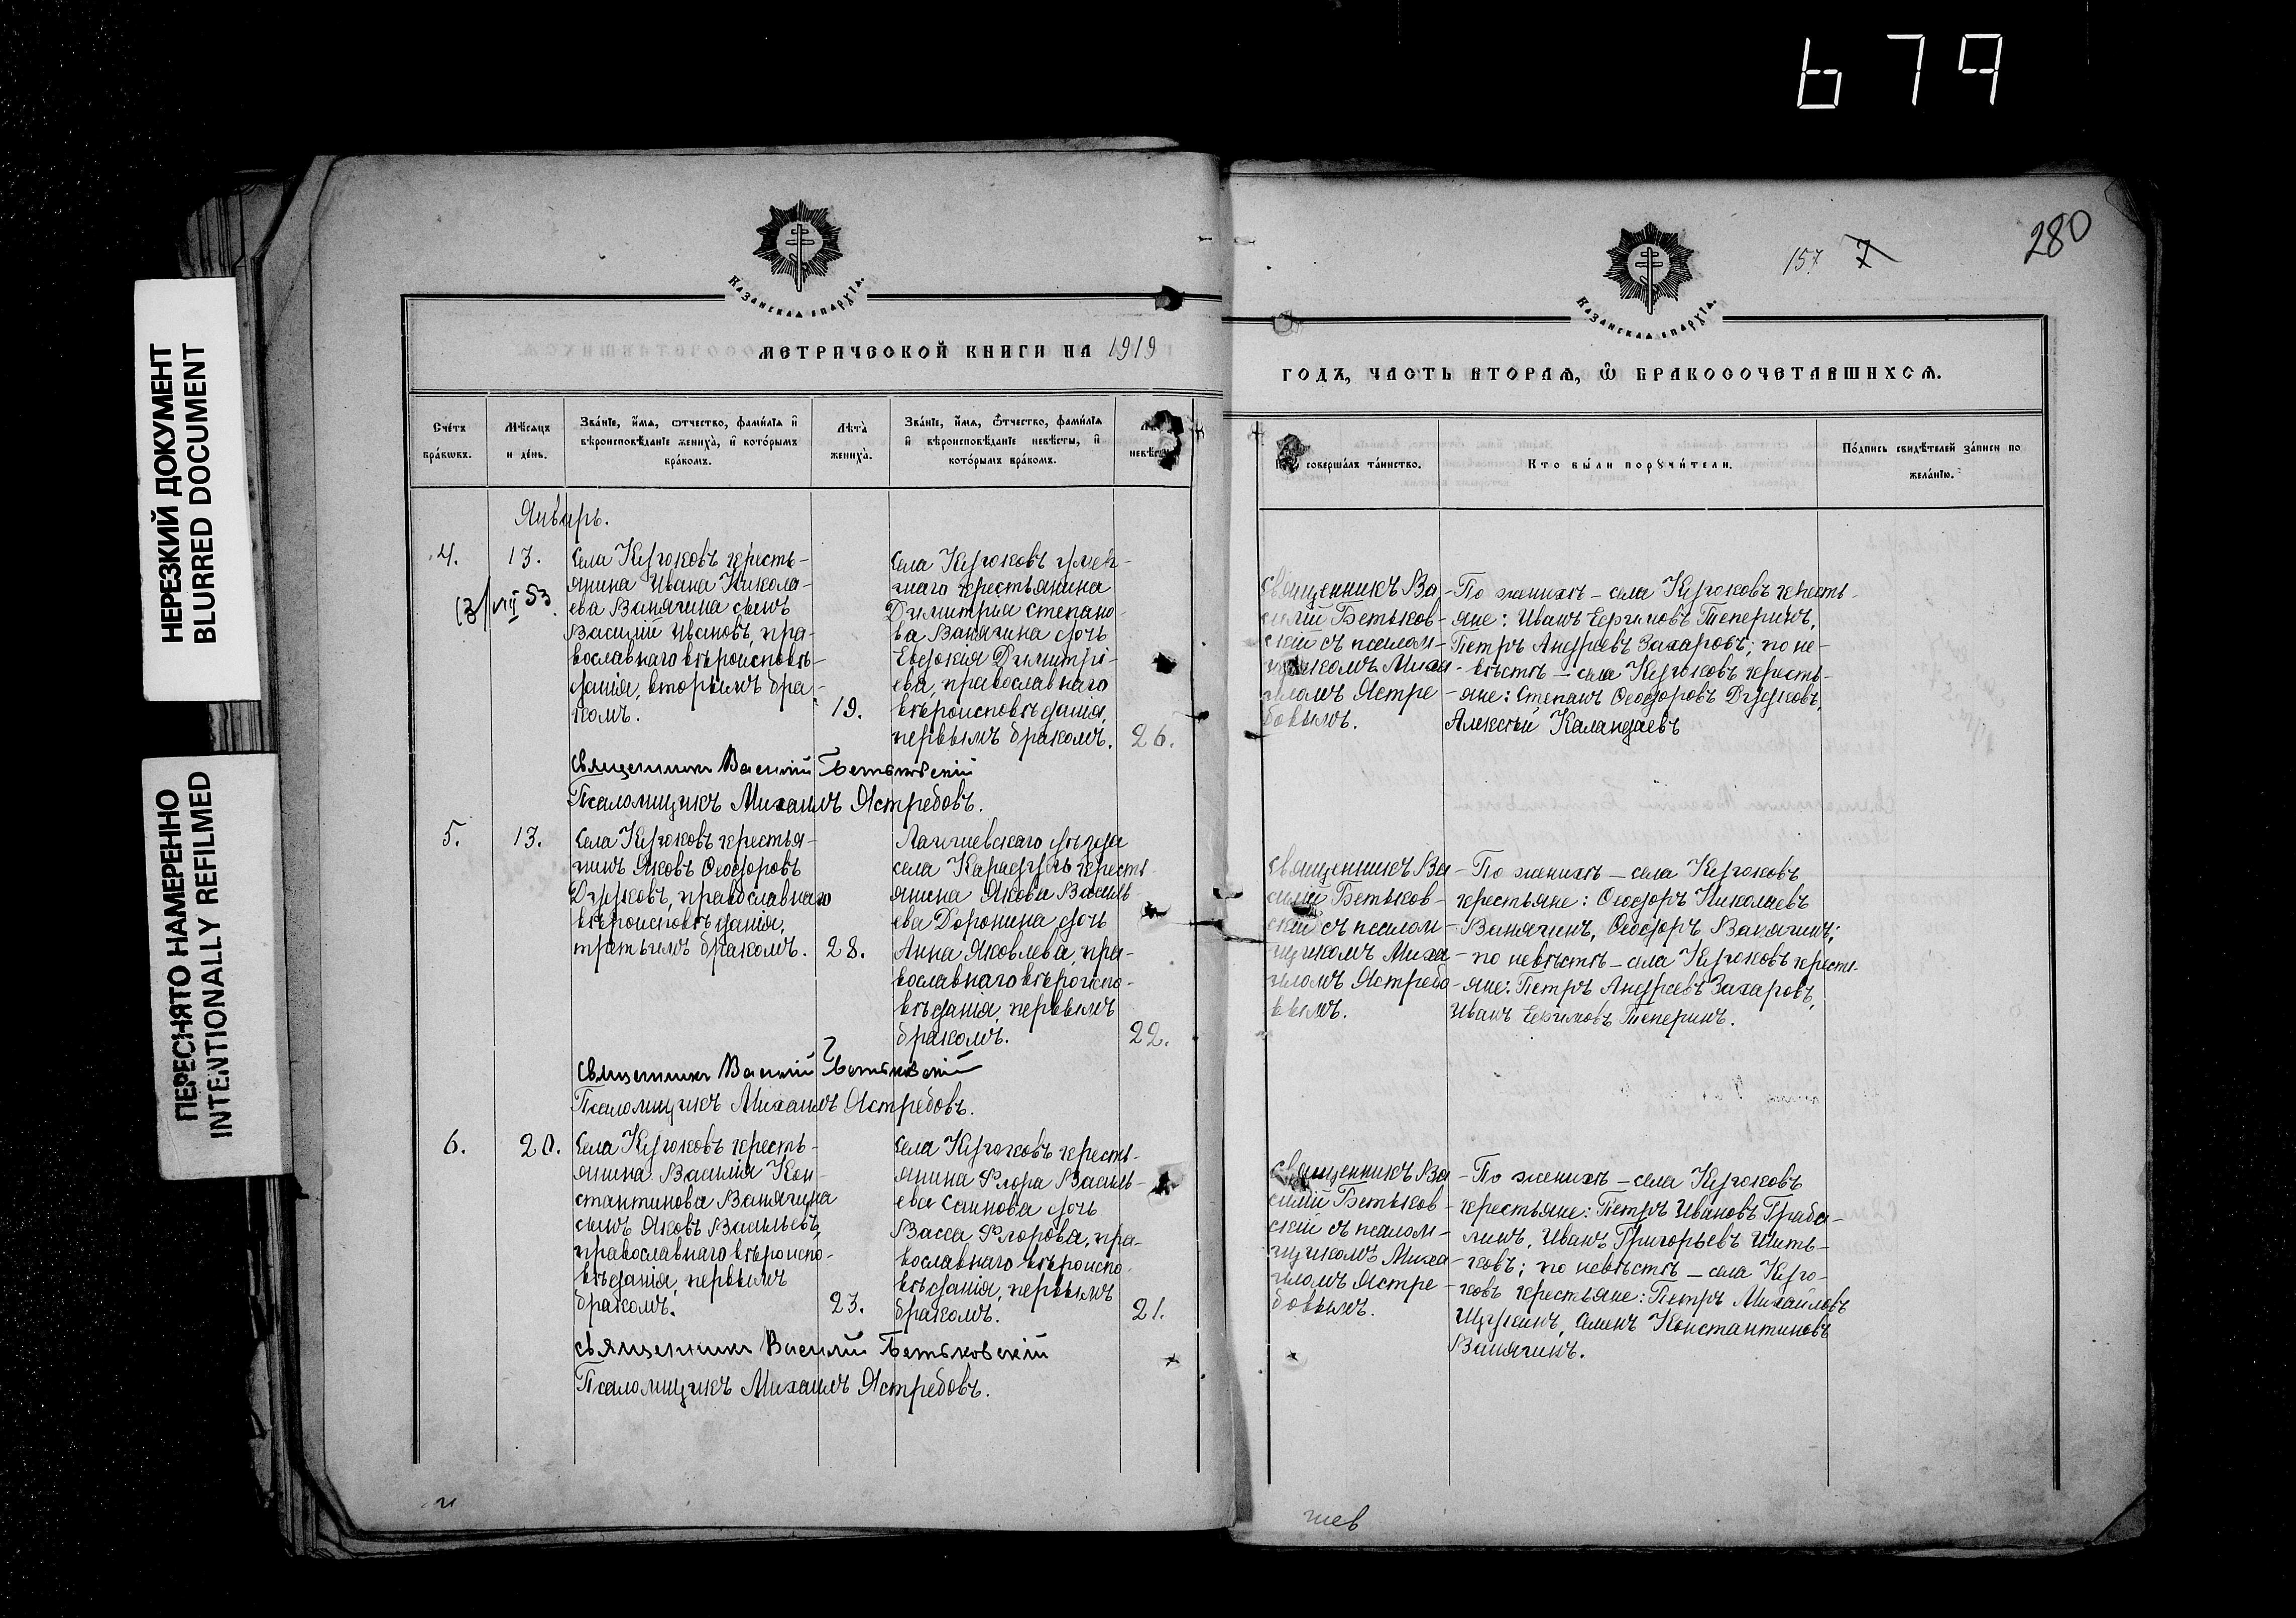 679
НЕРЕЗКИЙ ДОКУМЕНТ
BLURRED DOCUMENT
ПЕРЕСНЯТО НАМЕРЕННО
INTENTIONALLY REFILMED
Казанская епархія.
МЕТРИЧЕСКОЙ КНИГИ НА 1919
Счетъ браковъ.
Мѣсяцъ и день.
Званіе, имя, отчество, фамилія и
вѣроисповѣданіе жениха, и которымъ
бракомъ.
Лѣта
жениха.
Званіе, имя, отчество, фамилія
и вѣроисповѣданіе невѣсты, и
которымъ бракомъ.
невѣсты
Январь.
4.
13.
Села Кугоковъ кресть-
янина Ивана Никола-
ева Ванягина сынъ
Василій Ивановъ, пра-
вославнаго вѣроисповѣ-
данія, вторымъ бра-
комъ.
19.
Села Кугоковъ умер-
шаго крестьянина
Димитрія Степано-
ва Ванягина дочь
Евдокія Димитрі-
ева, православнаго
вѣроисповѣданія,
первымъ бракомъ.
26.
VIII 53.
Священникъ Василій Бетьковскій
Псаломщикъ Михаилъ Ястребовъ.
5.
13.
Села Кугоковъ крестья-
нинъ Яковъ Ѳеодоровъ
Дудковъ, православнаго
вѣроисповѣданія,
третьимъ бракомъ.
28.
Лаишевскаго уѣзда
села Карадуль кресть-
янина Якова Василь-
ева Доронина дочь
Анна Яковлева, пра-
вославнаго вѣроиспо-
вѣданія, первымъ
бракомъ.
22.
Священникъ Василій Бетьковскій
Псаломщикъ Михаилъ Ястребовъ.
6.
20.
Села Кугоковъ кресть-
янина Василія Кон-
стантинова Ванягина
сынъ Яковъ Васильевъ,
православнаго вѣроиспо-
вѣданія, первымъ
бракомъ.
23.
Села Кугоковъ кресть-
янина Флора Василь-
ева Саинова дочь
Васса Флорова, пра-
вославнаго вѣроиспо-
вѣданія, первымъ
бракомъ.
21.
Священникъ Василій Бетьковскій
Псаломщикъ Михаилъ Ястребовъ.
280
157 7
Казанская епархія.
ГОДЪ, ЧАСТЬ ВТОРАЯ, Ѡ БРАКОСОЧЕТАВШИХСЯ.
совершалъ таинство.
Кто были поручители.
Подпись свидѣтелей записи по
желанію.
Священникъ Ва-
силій Бетьков-
скій съ псалом-
щикомъ Миха-
иломъ Ястре-
бовымъ.
По женихѣ – села Кугоковъ кресть-
яне: Иванъ Ефимовъ Теперинъ,
Петръ Андреевъ Захаровъ; по не-
вѣстѣ – села Кугоковъ кресть-
яне: Степанъ Ѳеодоровъ Дудковъ,
Алексѣй Каландаевъ
Священникъ Ва-
силій Бетьков-
скій съ псалом-
щикомъ Миха-
иломъ Ястребо-
вымъ.
По женихѣ – села Кугоковъ
крестьяне: Ѳеодоръ Николаевъ
Ванягинъ, Ѳеодоръ Ванягинъ;
по невѣстѣ – села Кугоковъ кресть-
яне: Петръ Андреевъ Захаровъ,
Иванъ Ефимовъ Теперинъ.
Священникъ Ва-
силій Бетьков-
скій съ псалом-
щикомъ Миха-
иломъ Ястре-
бовымъ.
По женихѣ – села Кугоковъ
крестьяне: Петръ Ивановъ Граба-
линъ, Иванъ Григорьевъ Шить-
ковъ; по невѣстѣ – села Куго-
ковъ крестьяне: Петръ Михайловъ
Щукинъ, Семенъ Константиновъ
Ванягинъ.